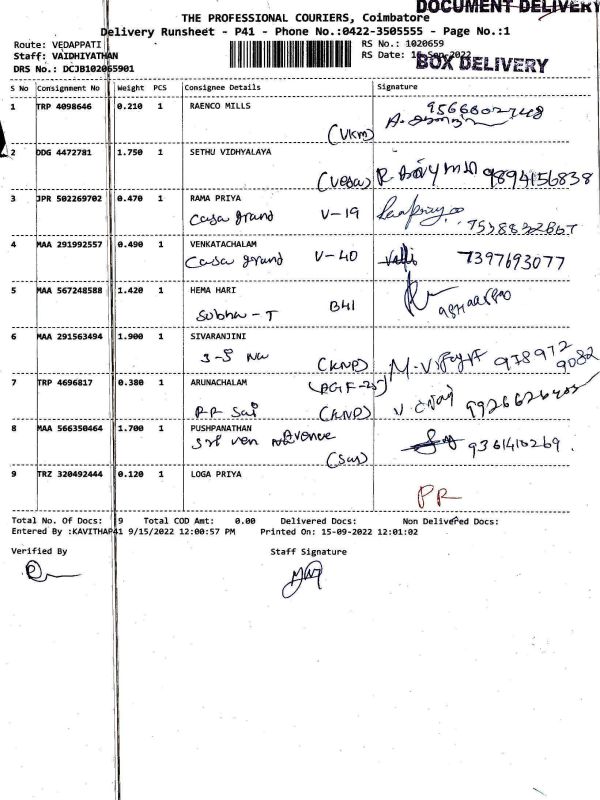 DOCUMENT DELIVERY
THE PROFESSIONAL COURIERS, Coimbatore
Delivery Runsheet - P41 - Phone No.:0422-3505555 - Page No.:1
Route: VEDAPPATI
RS No.: 1020659
Staff: VAIDHIYATHAN
RS Date: Sep-2022
BOX DELIVERY
DRS No.: DCJB102065901
S No Consignment No Weight PCS Consignee Details Signature
1 TRP 4098646 0.210 1 RAENCO MILLS
(Vkm)
2 DDG 4472781 1.750 1 SETHU VIDHYALAYA
9894156838
3 JPR 502269702 0.470 1 RAMA PRIYA
Casa grand V-19
4 MAA 291992557 0.490 1 VENKATACHALAM
Casa grand V-40 7397693077
5 MAA 567248588 1.420 1 HEMA HARI
B41
6 MAA 291563494 1.900 1 SIVARANJINI
(KNP) 978972
9082
7 TRP 4696817 0.380 1 ARUNACHALAM
(KNP)
8 MAA 566350464 1.700 1 PUSHPANATHAN
9361410269
9 TRZ 320492444 0.120 1 LOGA PRIYA
PR
Total No. Of Docs: 9 Total COD Amt: 0.00 Delivered Docs: Non Delivered Docs:
Entered By :KAVITHAP41 9/15/2022 12:00:57 PM Printed On: 15-09-2022 12:01:02
Verified By Staff Signature